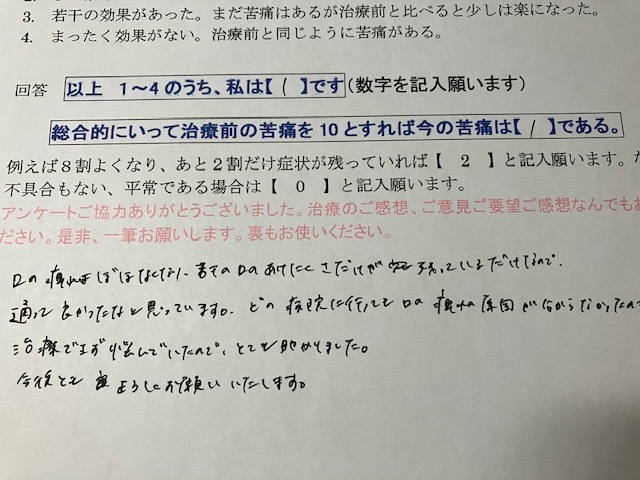 3. 若干の効果があった。まだ苦痛はあるが治療前と比べると少しは楽になった。
4. まったく効果がない。治療前と同じように苦痛がある。
回答 以上 1～4のうち、私は【 1 】です(数字を記入願います)
総合的にいって治療前の苦痛を10とすれば今の苦痛は【 1 】である。
例えば8割よくなり、あと2割だけ症状が残っていれば【 2 】と記入願います。
不具合もない、平常である場合は【 0 】と記入願います。
アンケートご協力ありがとうございました。治療のご感想、ご意見ご要望ご感想なんでもお
ださい。是非、一筆お願いします。裏もお使いください。
口の痛みほぼなくなり、若干の口のあけにくさだけが残っているだけなので、
通って良かったなと思っています。どの病院に行っても口の痛みの原因が分からなかったので
治療できず悩んでいたので、とても助かりました。
今後ともよろしくお願いいたします。